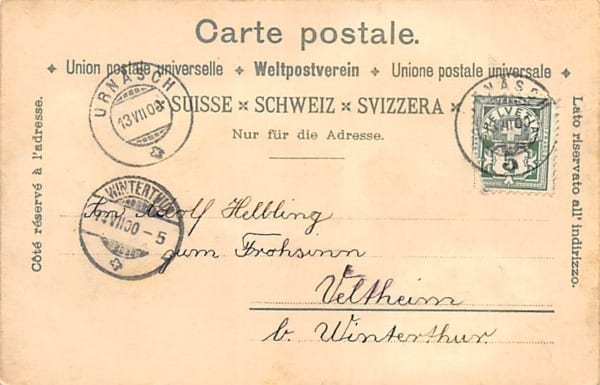 Carte postale.
Union postale universelle Weltpostverein Unione postale universale
SUISSE SCHWEIZ SVIZZERA
Nur für die Adresse.
Côté réservé à l'adresse.
Lato riservato all' indirizzo.
URNÄSCH
13 VII 00
WINTERTHUR
VII 00 - 5
URNÄSCH
VII 00
HELVETIA
5
Adolf Helbling
zum Frohsinn
Veltheim
b. Winterthur.